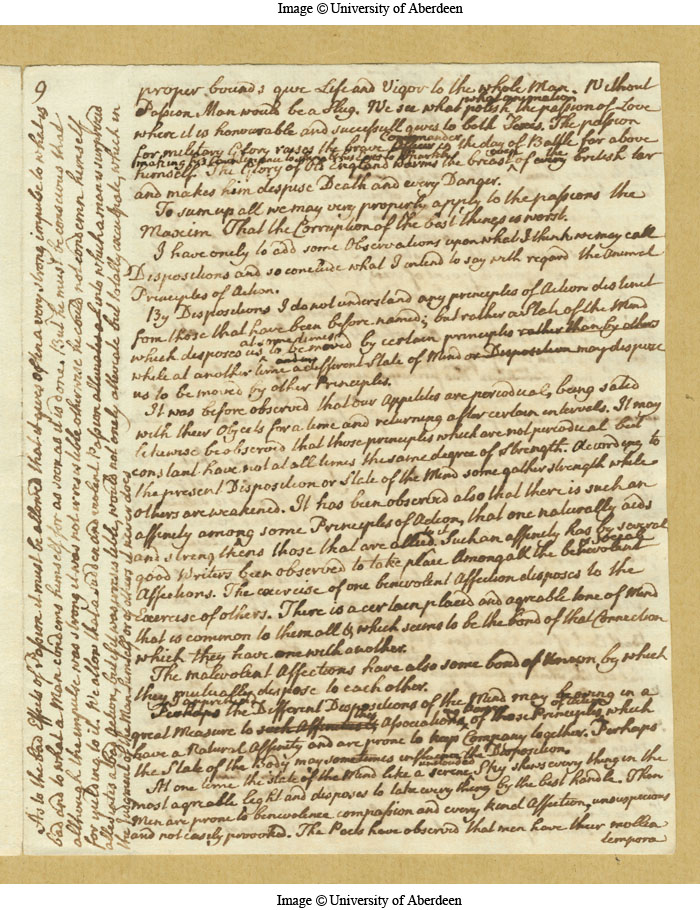 Image © University of Aberdeen
9
proper bounds give Life and Vigor to the whole Man. Without
what animation
Passion Man would be a Slug. We see what polish the passion of Love
where it is honourable and successfull gives to both Sexes. The passion
Commander
for military Glory raises the brave in the day of Battle far above
himself. The Glory of Old England warms the breast of every the british tar
and makes him despise Death and every Danger.
To sum up all we may very properly apply to the passions the
Maxim That the Corruption of the best things is worst.
I have onely to add some Observations upon what I think we may call
Dispositions and so conclude what I intend to say with regard the Animal
Principles of Action.
By Dispositions I do not understand any principles of Action distinct
from those that have been before named; but rather a State of the Mind
at some times
which disposes us to be moved by certain principles rather than by others
while at another time a different State of Mind or Disposition may dispose
us to be moved by other Principles.
It was before observed that our Appetites are periodical, being sated
with their Objects for a time and returning after certain intervals. It may
likewise be observed that those principles which are not periodical but
constant have not at all times the same degree of Strength. According to
the present Disposition or State of the Mind some gather strength while
others are weakened. It has been observed also that there is such an
affinity among some Principles of Action, that one naturally aids
and strengthens those that are allied to it. Such an affinity has by several
social
good Writers been observed to take place Amongst all the benevolent
Affections. The exercise of one benevolent Affection disposes to the
Exercise of others. There is a certain placid and agreable tone of Mind
that is common to them all & which seems to be the bond of that Connection
which they have one with another.
The malevolent Affections have also some bond of Union, by which
they mutually dispose to each other.
Perhaps the Different Dispositions of the Mind may be owing in a
great Measure to such Affinities Associations of those Principles, which
have a Natural Affinity and are prone to keep Company together. Perhaps
the State of the body may sometimes influence the Disposition.
unclouded
At one time the state of the Mind like a serene Sky shews every thing in the
most agreable light and disposes to take every thing by the best handle. Then
Men are prone to benevolence compassion and every kind Affection, unsuspicious
and not easily provoked. The Poets have observed that men have their mollia
tempora
As to the bad Effects of Passion it must be allowed that it gives often a very strong impulse to what is
bad and to what a Man condemns himself for as soon as it is done. But he must be conscious that
although the impulse was strong it was not irresistible otherwise he could not condemn himself
for yielding to it. We allow that a sudden and violent Passion into which a man is surprised
alleviates a bad Action, but if it was irresistible, would not onely alleviate but totally exculpate, which in
the Judgement of the Man himself or of others it never does.
Image © University of Aberdeen